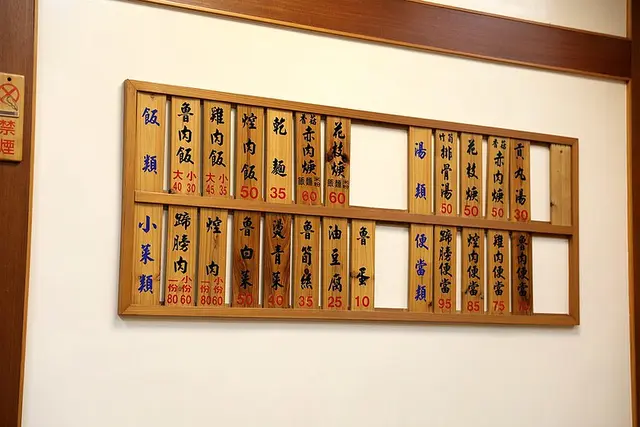 禁煙
飯類
魯肉飯 大40 小30
雞肉飯 大45 小35
焢肉飯 50
乾麵 35
香菇赤肉焿 飯麵 60
花枝焿 飯麵 60
湯類
竹筍排骨湯 50
花枝焿 50
香菇赤肉焿 50
貢丸湯 30
小菜類
蹄膀肉 一份80 小份60
焢肉 一份80 小份60
魯白菜 50
燙青菜 40
魯筍絲 35
油豆腐 25
魯蛋 10
便當類
蹄膀便當 95
焢肉便當 85
雞肉便當 75
魯肉便當